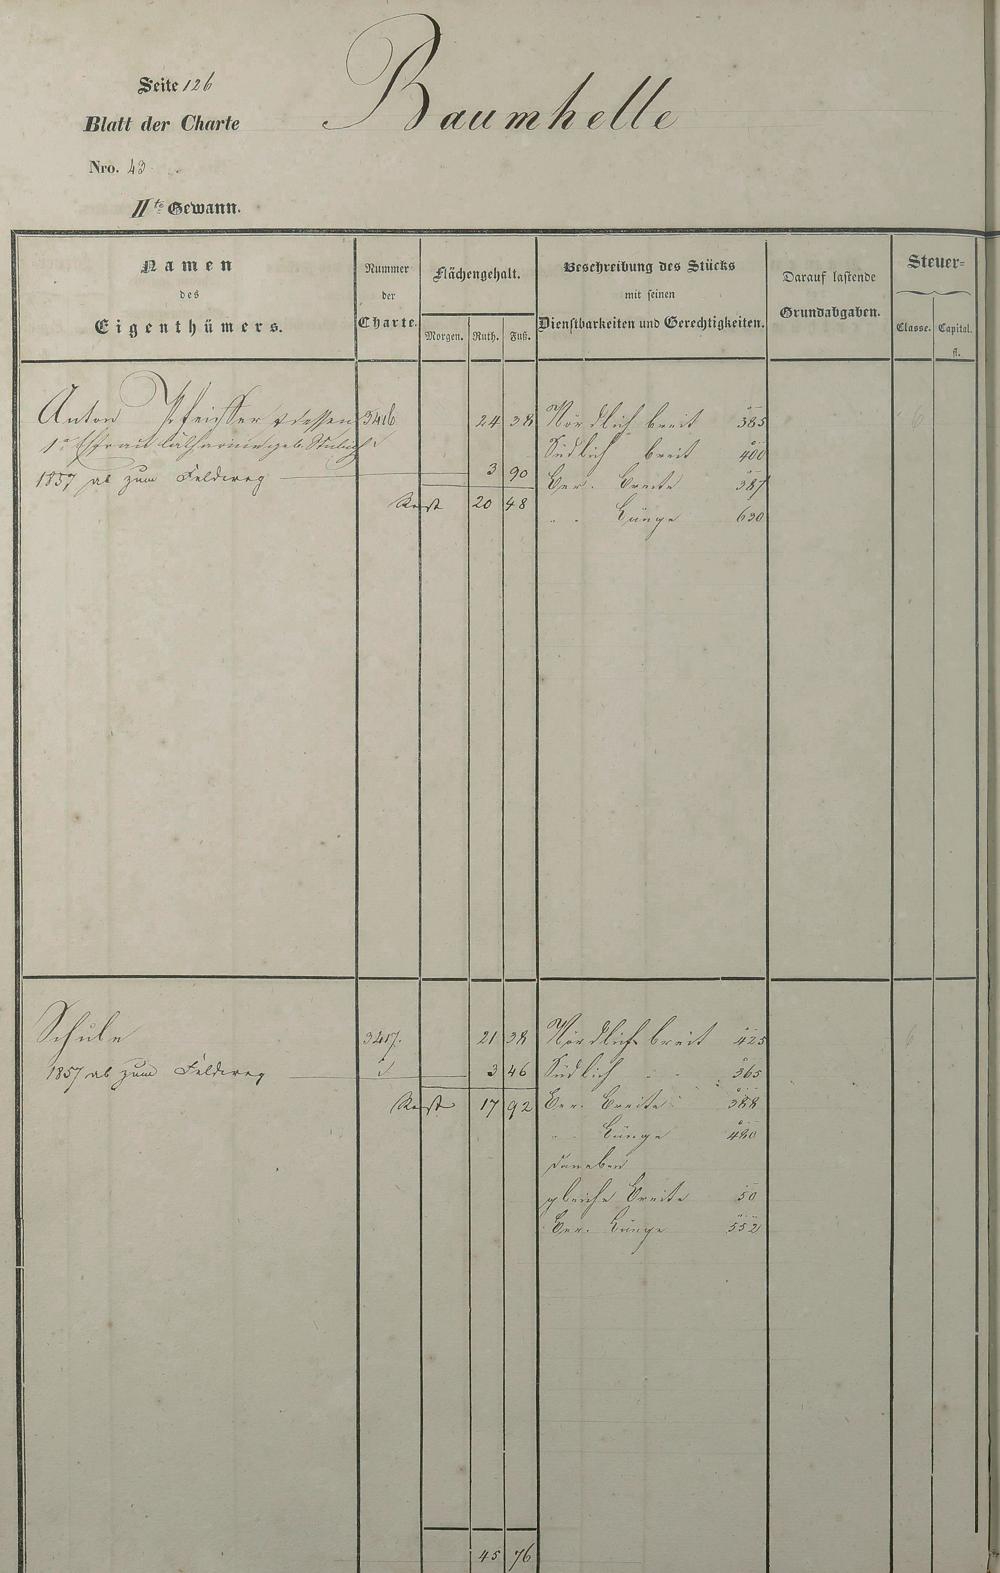 Baumhelle
Seite 126
Blatt der Charte
Nro. 43
IIte Gewann.
Namen des Eigenthümers.
Nummer der Charte.
Flächengehalt.
Morgen. Ruth. Fuß.
Beschreibung des Stücks mit seinen Dienstbarkeiten und Gerechtigkeiten.
Darauf lastende Grundabgaben.
Steuer=
Classe. Capital. fl.
Anton Pfeiffer & dessen 3416 24 38 Nördlich breit 385
1te Ehefrau Catharine geb. Südlich breit 400
1857 ab zum Feldweg 3 90 Ber. Breite 387
Rest 20 48 " " Länge 630
Schule 3417. 21 38 Nördlich breit 425
1857 ab zum Feldweg 3 46 Südlich " " 365
Rest 17 92 Ber. Breite 388
" " Länge 480
daneben
gleiche Breite 50
Ber. Länge 552
45 76